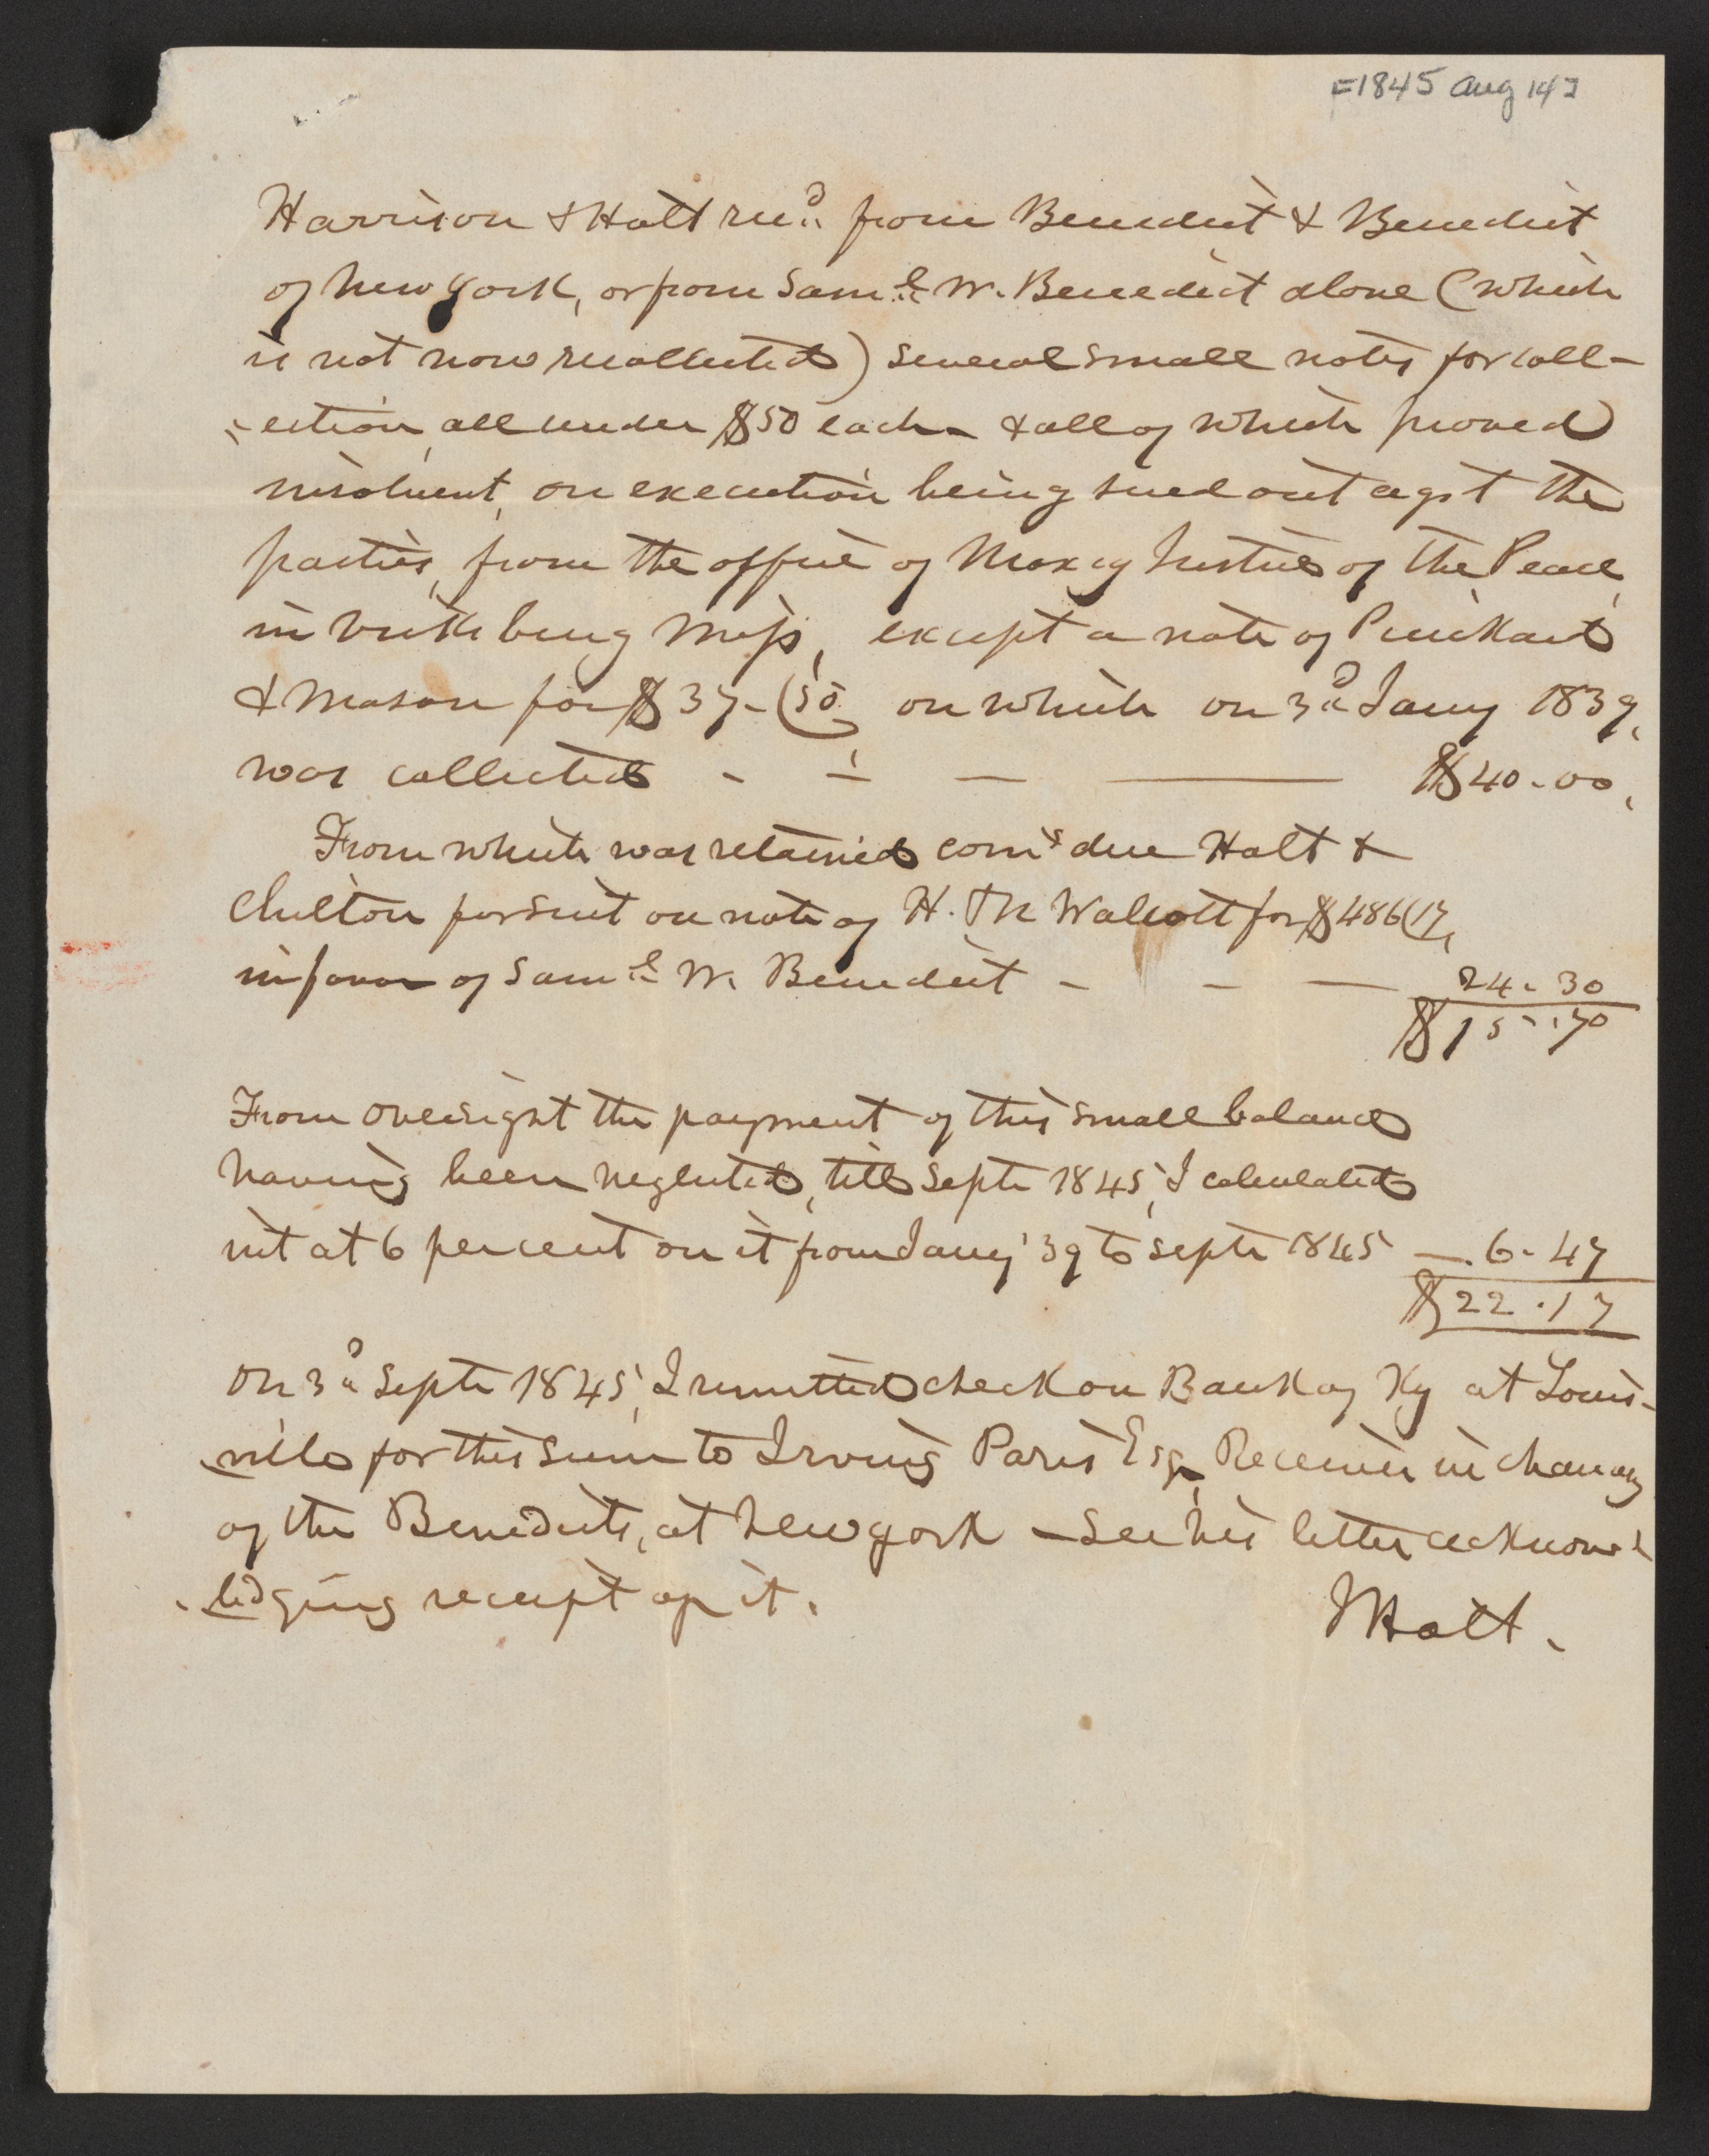 [1845 Aug 14]
Harrison & Holt recd from Benedict & Benedict
of New York, or from Saml W. Benedict alone (which
is not now recollected) several small notes for coll-
-ection, all under $50 each - & all of which proved
insolvent, on execution being sued out agst the
parties, from the office of Maxcy Justice of the Peace,
in Vicksburg Miss, except a note of Pinckard
& Mason for $37-(50 on which on 3d Jany 1839,
was collected - - - — $40-00,
From which was retained coms due Holt &
Chilton for suit on note of H. Walcott for $486(17,
in favor of Saml W. Benedict - - — 24-30
$15.70
From oversight the payment of this small balance
having been neglected, till Septr 1845, I calculated
int at 6 per cent on it from Jany 39 to Septr 1845 — 6-47
$22.17
On 3d Septr 1845, I remitted check on Bank of Ky at Louis-
-ville for this sum to Irving Paris Esq, Receiver in chancery
of the Benedicts, at New York - See his letter acknow-
-ledging receipt of it.
J Holt.